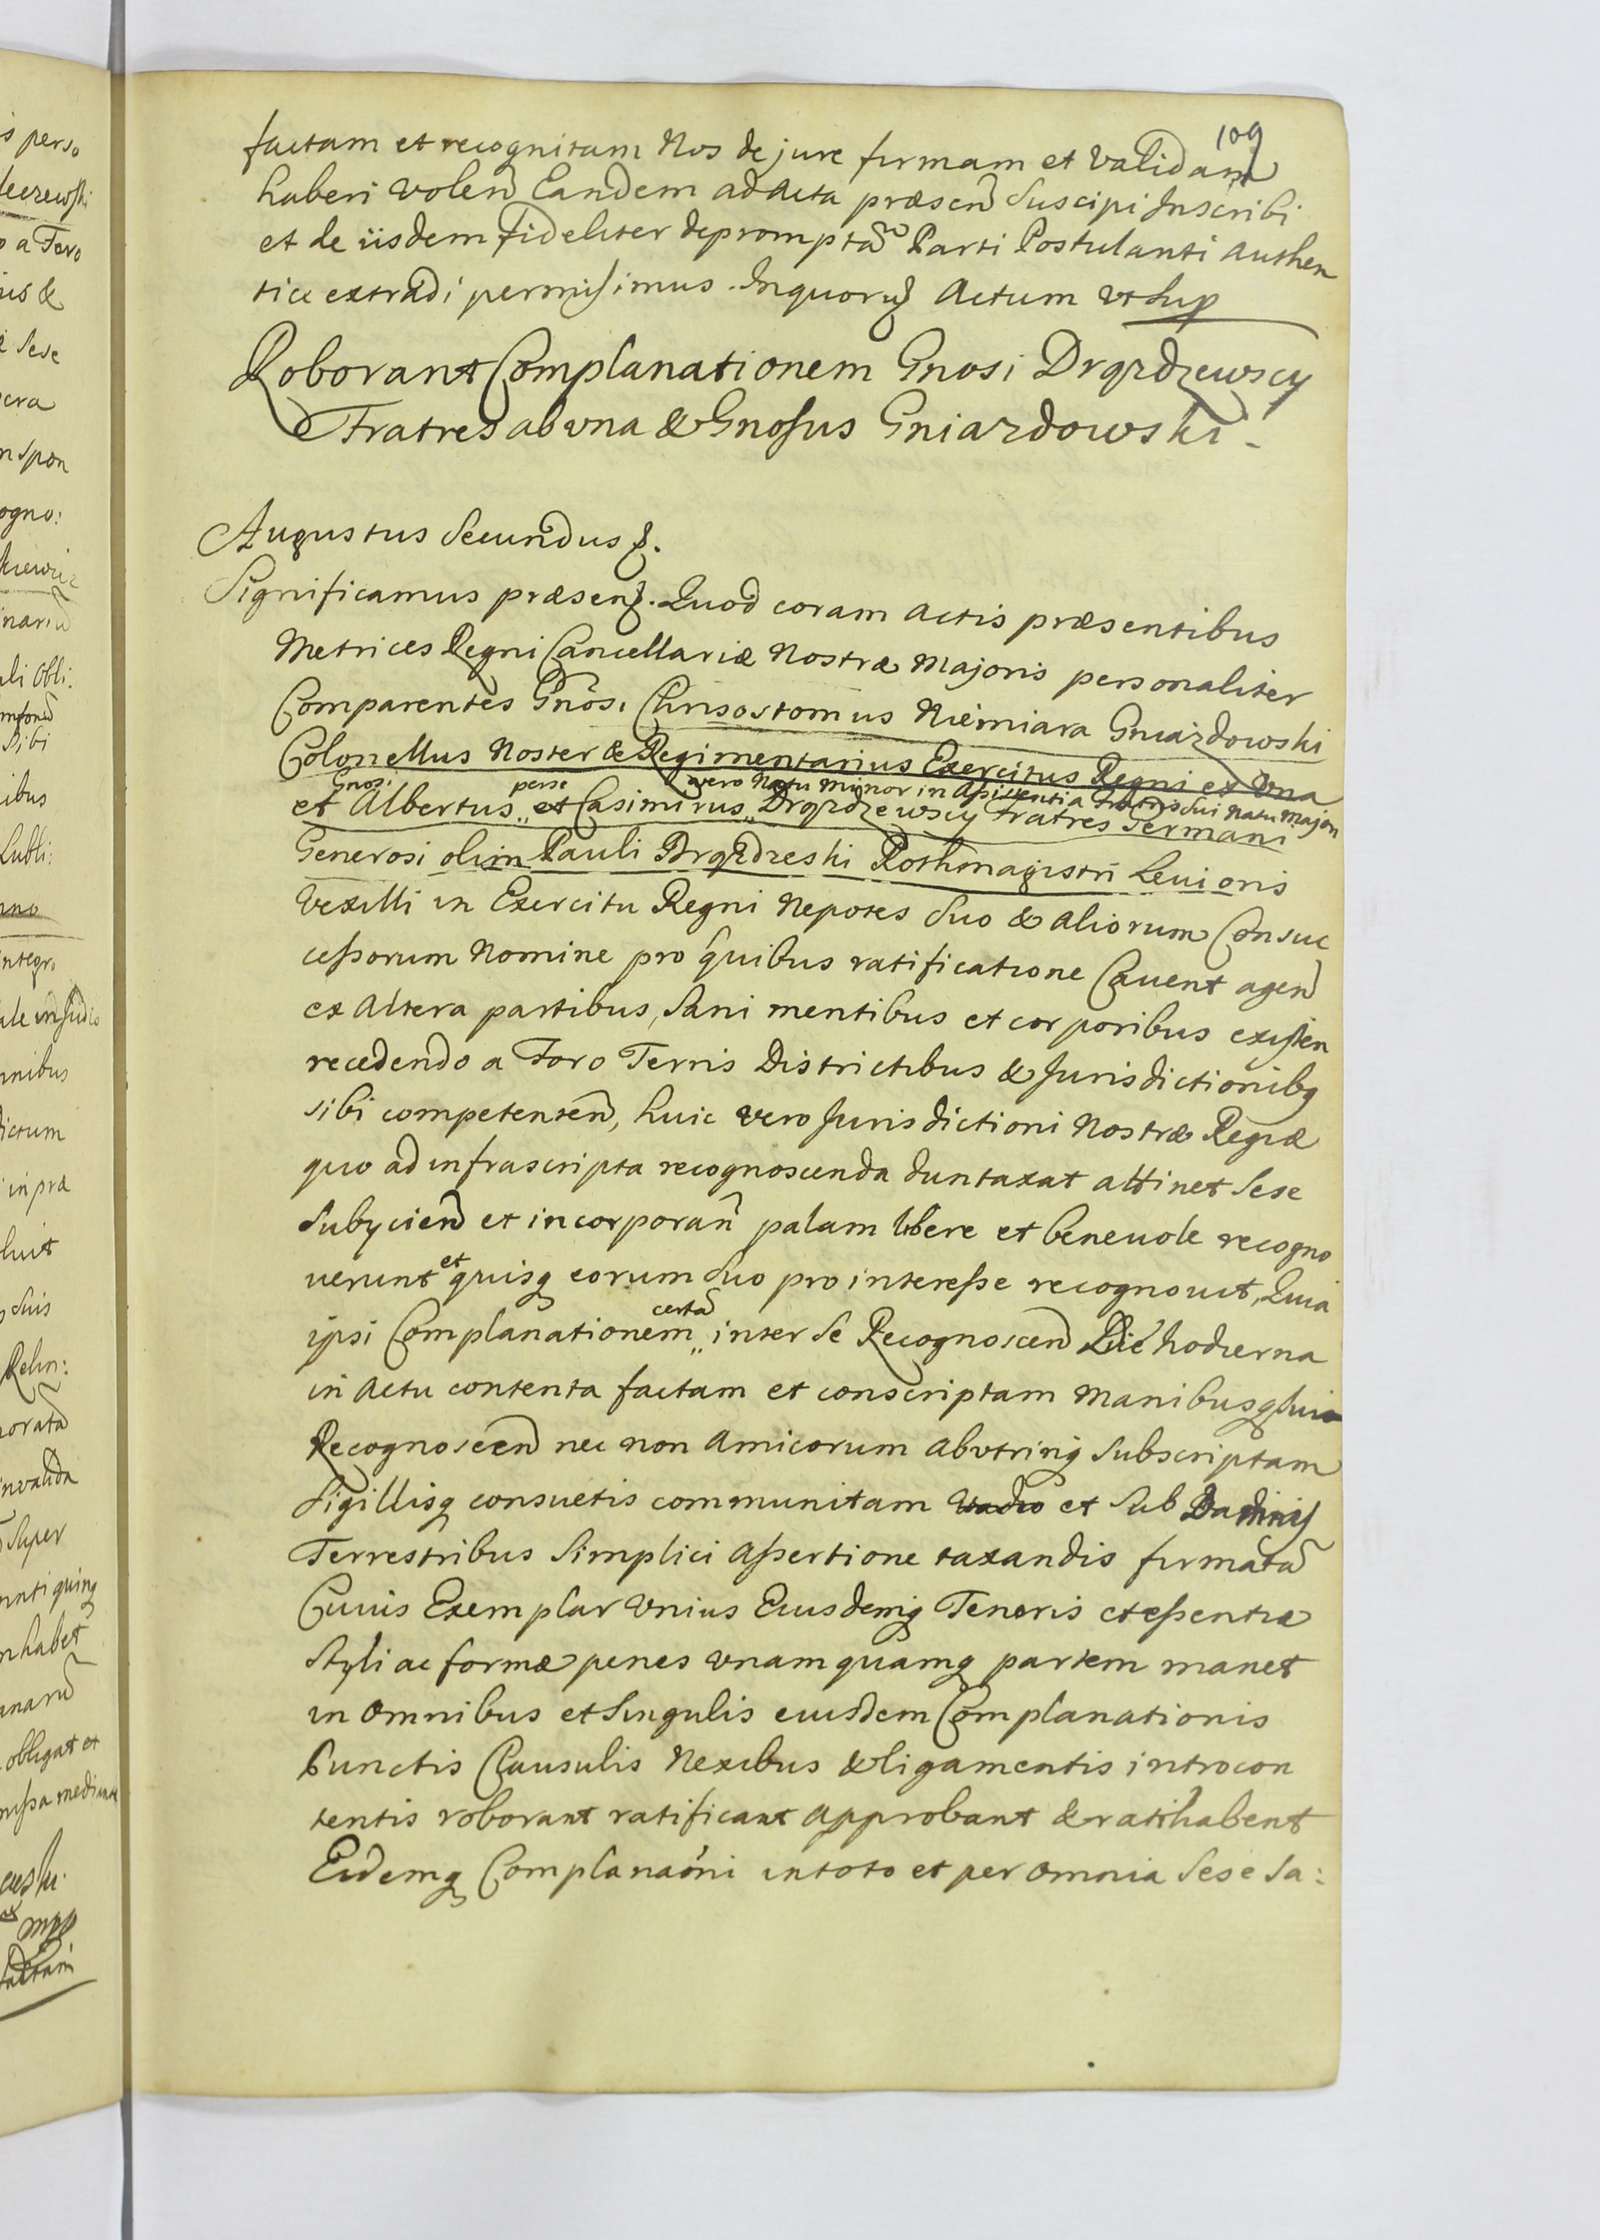 109
factam et recognitam Nos de jure firmam et validam
haberi volen Eandem ad Acta præsen Suscipi Inscribi
et de iisdem fideliter depromptã Parti Postulanti Authen
tice extradi permisimus. In quorũ Actum ut sup
Roborant Complanationem Gnosi Drązdzewscy
Fratres ab una & Gnosus Gniazdowski -
Augustus Secundus &.
Significamus præsen. Quod coram Actis præsentibus
Metrices Regni Cancellariæ Nostræ Majoris personaliter
Comparentes Gnosi Chrisostomus Niemiara Gniazdowski
Colonellus Noster & Regimentarius Exercitus Regni ex Una
Gnosi perse vero Natu Minor in Assistentia Fratris Sui Natu Majori
et Albertus,, et Casimirus,, Drązdzewscy Fratres Germani
Generosi olim Pauli Drązdzeski Rothmagistri Leuioris
Vexilli in Exercitu Regni Nepotes Suo & Aliorum Consuc
cessorum Nomine pro quibus ratificatione Cauent agen
ex Altera partibus, Sani mentibus et corporibus existen
recedendo a Foro Terris Districtibus & Jurisdictionibq
sibi competenten, huic vero Jurisdictioni Nostræ Regiæ
quo ad infrascripta recognoscenda duntaxat attinet Sese
Subycien et incorporan palam libere et beneuole recogno
uerunt et quisq eorum Suo pro interesse recognouit, Quia
certã
ipsi Complanationem,, inter Se Recognoscen Die hodierna
in Actu contenta factam et conscriptam Manibusq suis
Recognoscen nec non Amicorum ab utrinq Subscriptam
Sigillisq consuetis communitam Vadio et Sub
Terrestribus Simplici Assertione taxandis firmatã
Cuius Exemplar Unius Eiusdemq Tenoris et essentiæ
Styli ac formæ penes unamquamq partem manet
in Omnibus et Singulis eiusdem Complanationis
Punctis Clausulis Nexibus & ligamentis introcon
tentis roborant ratificant Approbant & ratihabent
Eidemq Complanaoni in toto et per Omnia Sese Sa: